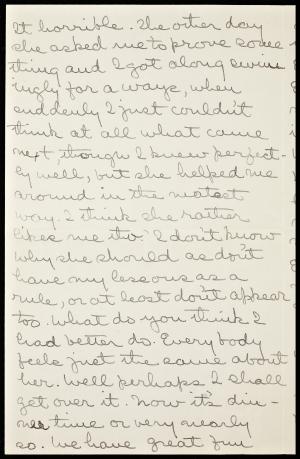 It horrible. The other day
she asked me to prove some
thing and I got along swim
ingly for a ways, when
suddenly I just couldn't
think at all what came
next though I knew perfect-
ly well, but she helped me
around in the neatest
way. I think she rather
likes me tho.' I don't know
why she should as don't
have my lessons as a
rule, or at least don't appear
too. What do you think I
had better do. Every body
feels just the same about
her. Well perhaps I shall
get over it. Now it's din-
ner time or very nearly
so. We have great fun